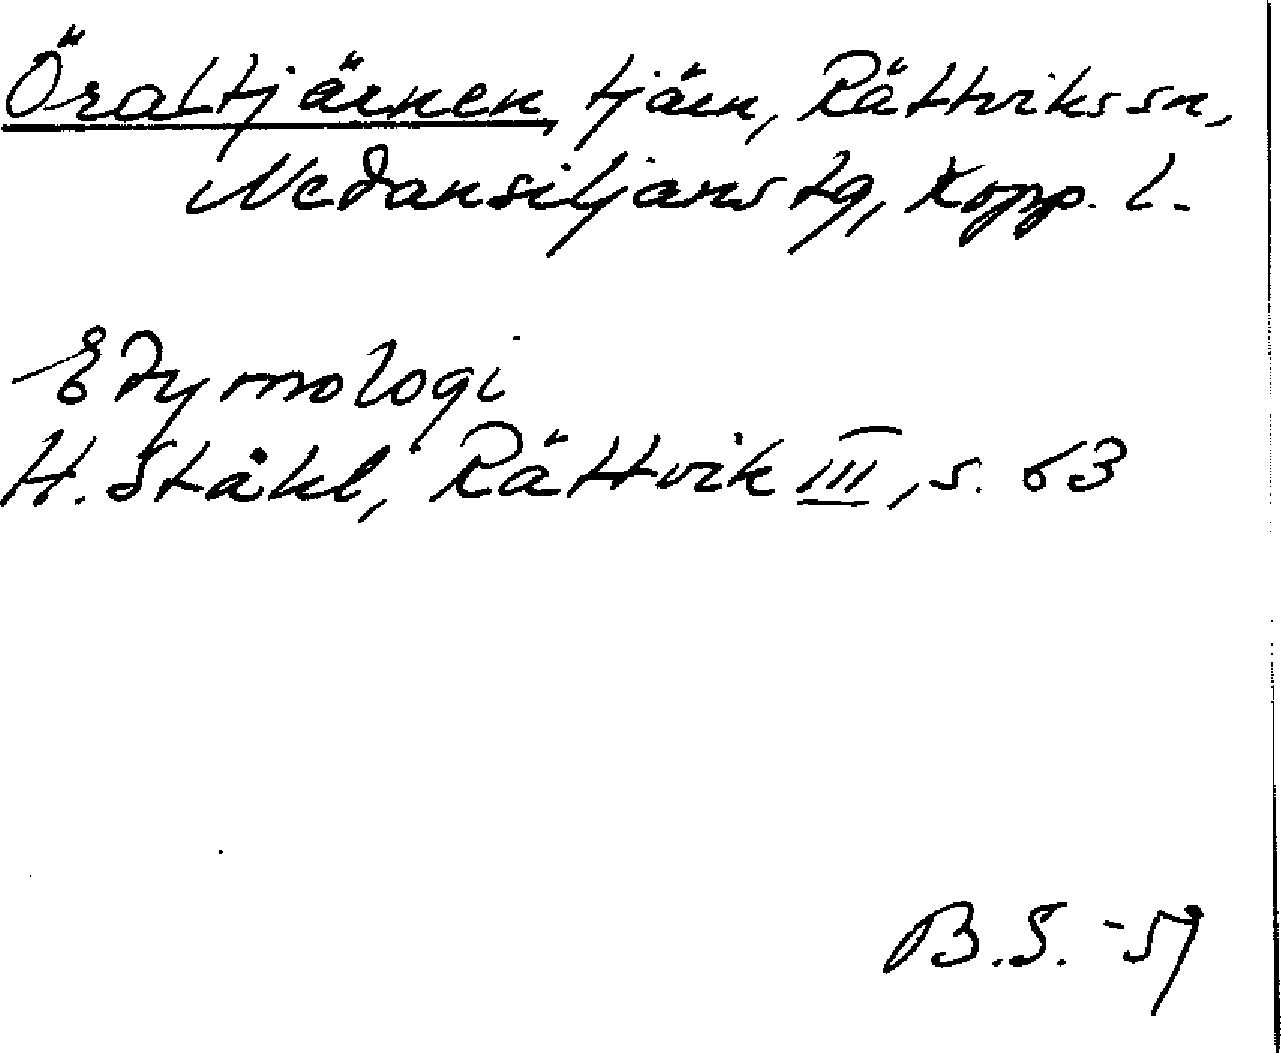 Öraltjärnen, tjärn, Rättviks sn,
Nedansiljans tg, Kopp. l.
Etymologi
H. Ståhl, Rättvik III, s. 63
B.S. -59